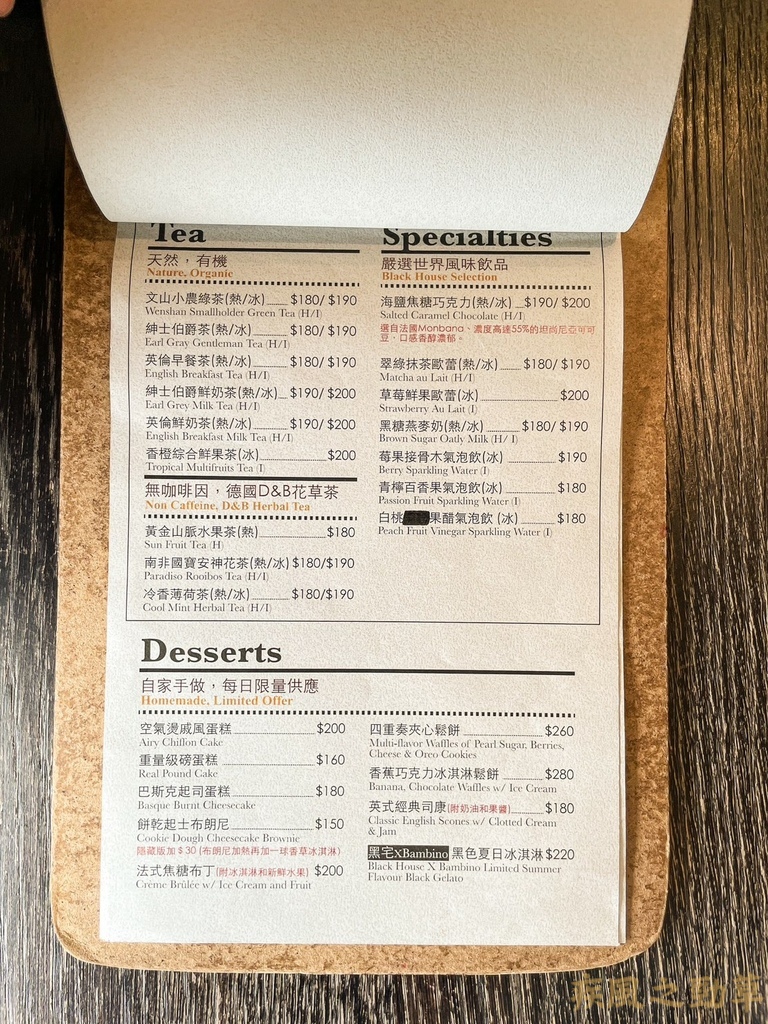 Tea
天然，有機
Nature, Organic
文山小農綠茶(熱/冰) $180/ $190
Wenshan Smallholder Green Tea (H/I)
紳士伯爵茶(熱/冰) $180/ $190
Earl Gray Gentleman Tea (H/I)
英倫早餐茶(熱/冰) $180/ $190
English Breakfast Tea (H/I)
紳士伯爵鮮奶茶(熱/冰) $190/ $200
Earl Grey Milk Tea (H/I)
英倫鮮奶茶(熱/冰) $190/ $200
English Breakfast Milk Tea (H/I)
香橙綜合鮮果茶(冰) $200
Tropical Multifruits Tea (I)
無咖啡因，德國D&B花草茶
Non Caffeine, D&B Herbal Tea
黃金山脈水果茶(熱) $180
Sun Fruit Tea (H)
南非國寶安神花茶(熱/冰) $180/$190
Paradiso Rooibos Tea (H/I)
冷香薄荷茶(熱/冰) $180/$190
Cool Mint Herbal Tea (H/I)
Specialties
嚴選世界風味飲品
Black House Selection
海鹽焦糖巧克力(熱/冰) $190/ $200
Salted Caramel Chocolate (H/I)
選自法國Monbana、濃度高達55%的坦尚尼亞可可
豆，口感香醇濃郁。
翠綠抹茶歐蕾(熱/冰) $180/ $190
Matcha au Lait (H/I)
草莓鮮果歐蕾(冰) $200
Strawberry Au Lait (I)
黑糖燕麥奶(熱/冰) $180/ $190
Brown Sugar Oatly Milk (H/ I)
莓果接骨木氣泡飲(冰) $190
Berry Sparkling Water (I)
青檸百香果氣泡飲(冰) $180
Passion Fruit Sparkling Water (I)
白桃果醋氣泡飲 (冰) $180
Peach Fruit Vinegar Sparkling Water (I)
Desserts
自家手做，每日限量供應
Homemade, Limited Offer
空氣燙戚風蛋糕 $200
Airy Chiffon Cake
重量級磅蛋糕 $160
Real Pound Cake
巴斯克起司蛋糕 $180
Basque Burnt Cheesecake
餅乾起士布朗尼 $150
Cookie Dough Cheesecake Brownie
隱藏版加＄30 (布朗尼加熱再加一球香草冰淇淋)
法式焦糖布丁(附冰淇淋和新鮮水果) $200
Crème Brûlée w/ Ice Cream and Fruit
四重奏夾心鬆餅 $260
Multi-flavor Waffles of Pearl Sugar, Berries,
Cheese & Oreo Cookies
香蕉巧克力冰淇淋鬆餅 $280
Banana, Chocolate Waffles w/ Ice Cream
英式經典司康(附奶油和果醬) $180
Classic English Scones w/ Clotted Cream
& Jam
黑宅XBambino 黑色夏日冰淇淋 $220
Black House X Bambino Limited Summer
Flavour Black Gelato
疾風之勁草